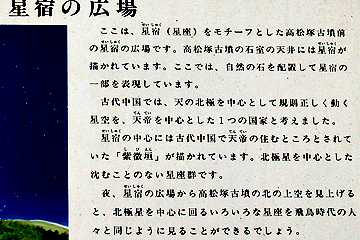 星宿の広場
ここは、星宿（星座）をモチーフとした高松塚古墳前
の星宿の広場です。高松塚古墳の石室の天井には星宿が
描かれています。ここでは、自然の石を配置して星宿の
一部を表現しています。
古代中国では、天の北極を中心として規則正しく動く
星空を、天帝を中心とした１つの国家と考えました。
星宿の中心には古代中国で天帝の住むところとされて
いた「紫微垣」が描かれています。北極星を中心とした
沈むことのない星座群です。
夜、星宿の広場から高松塚古墳の北の上空を見上げる
と、北極星を中心に回るいろいろな星座を飛鳥時代の人
々と同じように見ることができるでしょう。